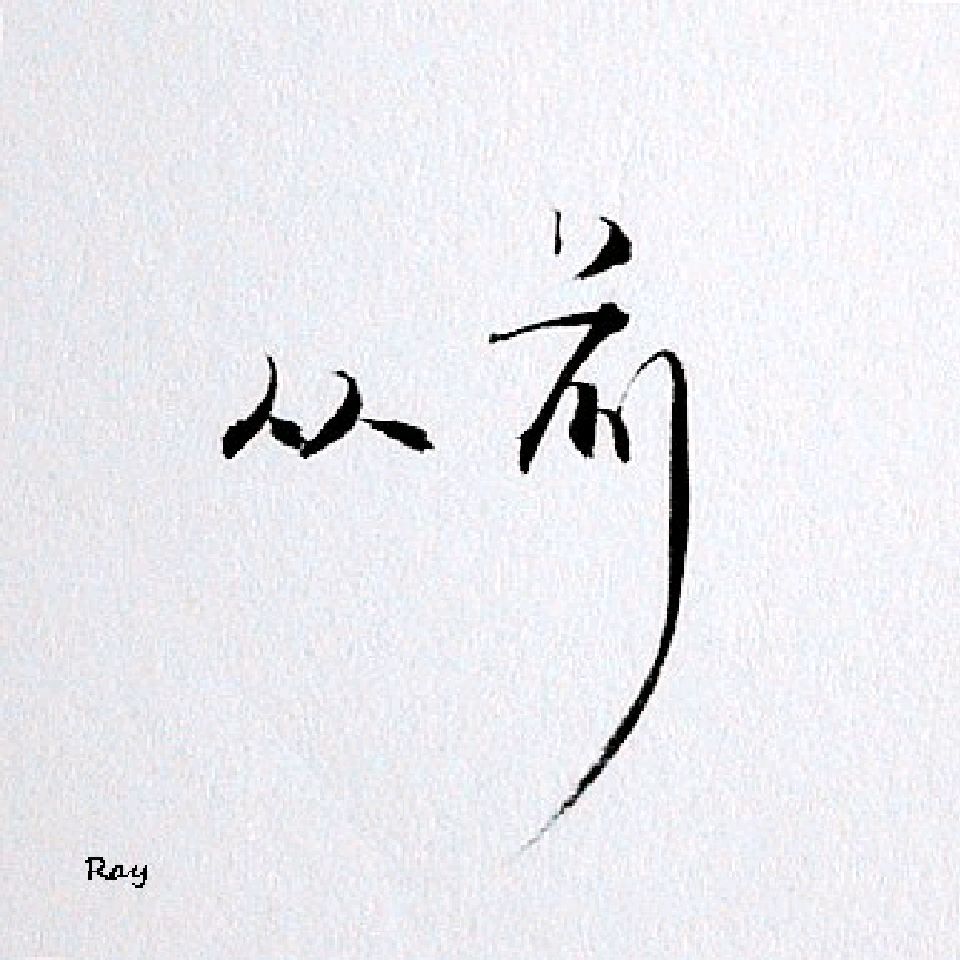 从前
Ray